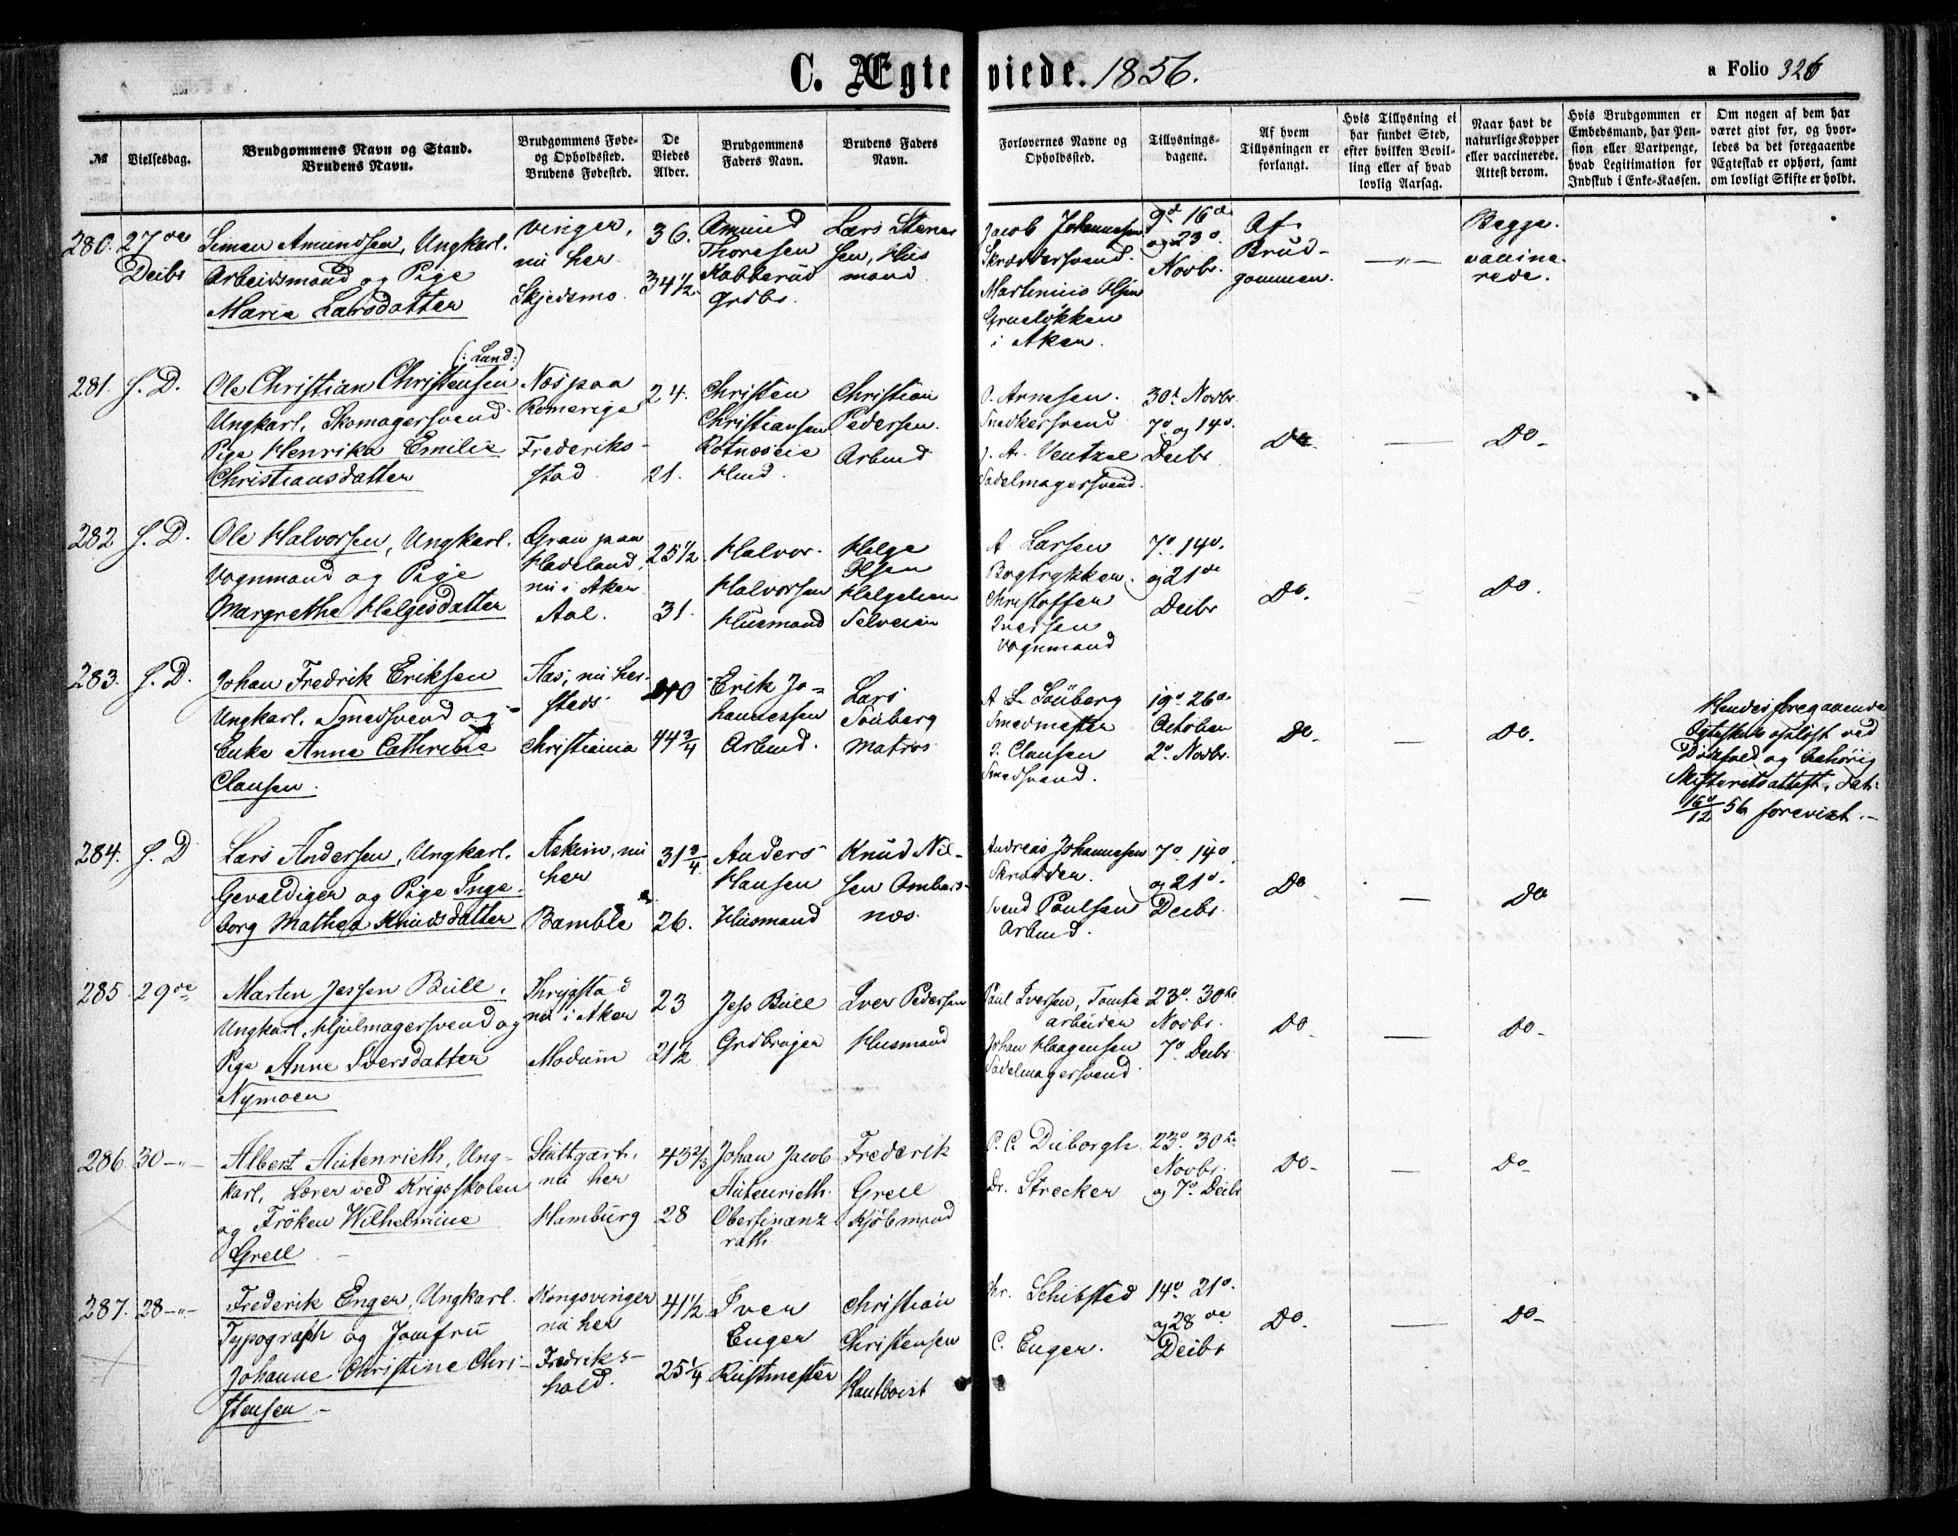 C. Ægteviede. 1856.
a Folio 326
№
Vielsesdag.
Brudgommens Navn og Stand.
Brudens Navn.
Brudgommens Føde-
og Opholdssted.
Brudens Fødested.
De
Viedes
Alder.
Brudgommens
Faders Navn.
Brudens Faders
Navn.
Forlovernes Navne og
Opholdssted.
Tillysnings-
dagene.
Af hvem
Tillysningen er
forlangt.
Hvis Tillysning ei
har fundet Sted,
efter hvilken Bevil-
ling eller af hvad
lovlig Aarsag.
Naar havt de
naturlige Kopper
eller vaccinerede.
Attest derom.
Hvis Brudgommen er
Embedsmand, har Pen-
sion eller Vartpenge,
hvad Legitimation for
Indskud i Enke-Kassen.
Om nogen af dem har
været givt før, og hvor-
ledes da det foregaaende
Ægteskab er ophørt, samt
om lovligt Skifte er holdt.
280. 27de Deibr
Simen Amundsen, Ungkarl.
Arbeidsmand og Pige
Maria Larsdatter
Vinger,
nu her.
Skjedsmo.
36.
34 1/2.
Amund
Thoresen
Kabberud
Grdbr.
Lars Stenersen, Husmand
Jacob Johannesen
Skræddersvend.
Martinius Olsen
Grueløkken
i Aker.
9d 16d
og 23d.
Novbr.
Af
Brud-
gommen.
—„—
Begge
vaccine-
rede.
281. S. D.
(: Land:)
Ole Christian Christensen
Ungkarl, Skomagersvend
Pige Henrika Emilie
Christiansdatter
Næs paa
Romerige
Frederiks-
stad
24.
21.
Christen
Christiansen
Rotnæseie
Hmd.
Christian
Pedersen.
Arbmd
O. Arnesen.
Snedkersvend
J. A. Ventzel
Sadelmagersvend.
30t Novbr.
7d og 14d.
Deibr
Do.
—
Do-
282 S. D.
Ole Halvorsen, Ungkarl.
Vognmand og Pige
Margrethe Helgesdatter
Gran paa
Hadeland,
nu i Aker
Aal.
25 1/2
31.
Halvor
Halvorsen
Husmand
Helge
Olsen
A Larsen
Bogtrykker.
Christoffer
Iversen
Vognmand
7d 14d.
og 21de
Deibr
Do.
Do.
283. S. D.
Johan Fredrik Eriksen
Ungkarl. Smedsvend og
Enke Anne Cathrine
Clausen.
Aas, nu her-
steds
Christiania
40
44 3/4
Erik Jo-
hannessen
Arbmd.
Lars
Souberg
Matros
A L Souberg
Smedmester
J. Clausen
Smedsvend.
19d 26d
October
2d Novbr.
Do-
—
Do.
Hendes foregaaende
Ægteskab opløst ved
Dødsfald og behørig
Skifteretsattest, dat:
16d/12 56 forevist.-
284. S. D
Lars Andersen, Ungkarl.
Gevaldiger og Pige Inge-
borg Mathea Knudsdatter
Askim, nu
her
Bamble
31 3/4
26.
Anders
Hansen
Husmand
Knud Nil-
sen Ombars-
næs.
Andreas Johannesen
Skrædder.
Svend Poulsen
Arbmd.
7d 14d
og 21d.
Deibr.
Do
—
Do
285 29de
Marten Jessen Bull.
Ungkarl, Hjulmagersvend og
Pige Anne Iversdatter
Nymoen
Thrygstad
nu i Aker
Modum
23
21 1/2
Jess Bull
Grdbruger
Iver Pedersen
Husmand
Paul Iversen, Tomte
arbeider
Johan Haagensen
Sadelmagersvend.
23d. 30te
Novbr.
7d Deibr
Do-
—
Do-
286. 30 -„-
Albert Autenrieth, Ung-
karl, Lærer ved Krigsskolen
og Frøken Wilhelmine
Grell
Stuttgart,
nu her
Hamburg
43 2/3
28
Johan Jacob
Autenrieth
Oberfinanz
rath.
Frederik
Grell
Kjøbmand
C. C. Dieborgh.
Dr. Strecker
23d. 30te
Novbr.
og 7d. Deibr
Do-
—
Do-
287. 28 -„-
Frederik Enger, Ungkarl.
Typograph og Jomfru
Johanne Christine Chri-
stensen -
Kongsvinger
nu her
Fredriks-
hald.
41 1/2
25 1/4
Iver
Enger
Rustmester
Christian
Christensen
Chr. Schibsted
C. Enger.
14d 21d.
og 28de
Deibr
Do.
—
Do-